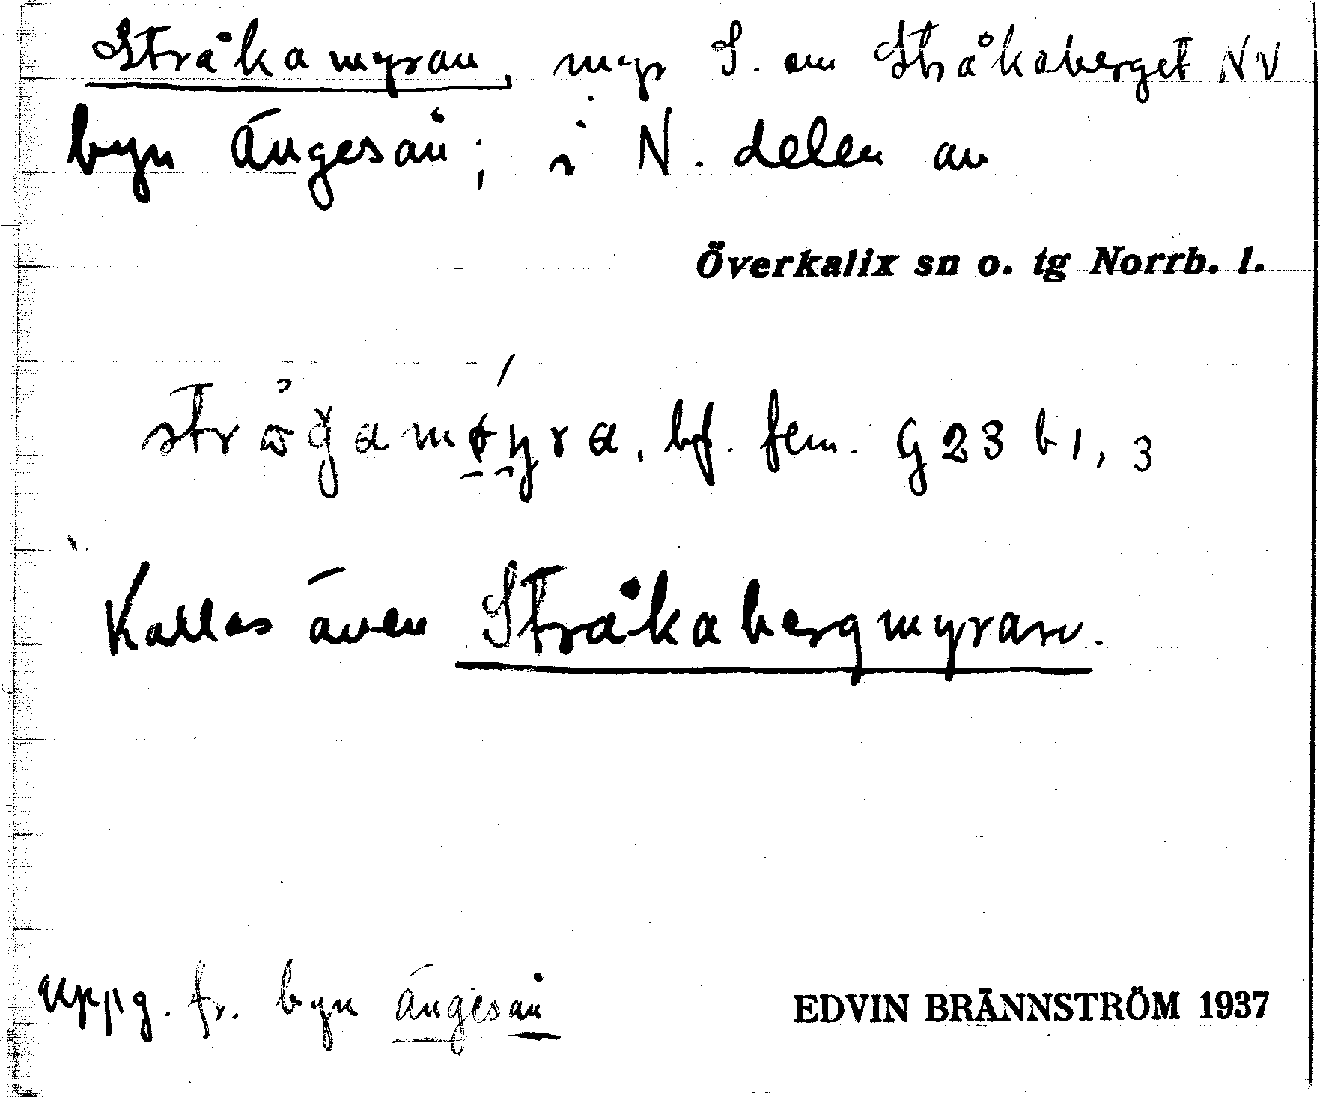 Stråkamyran, myr S. om Stråkaberget NV
byn Ängesån; i N. delen av
Överkalix sn o. tg Norrb. l.
bf. fem. G 23 b 1, 3
Kallas även Stråkabergmyran.
Uppg. fr. byn Ängesån
EDVIN BRÄNNSTRÖM 1937